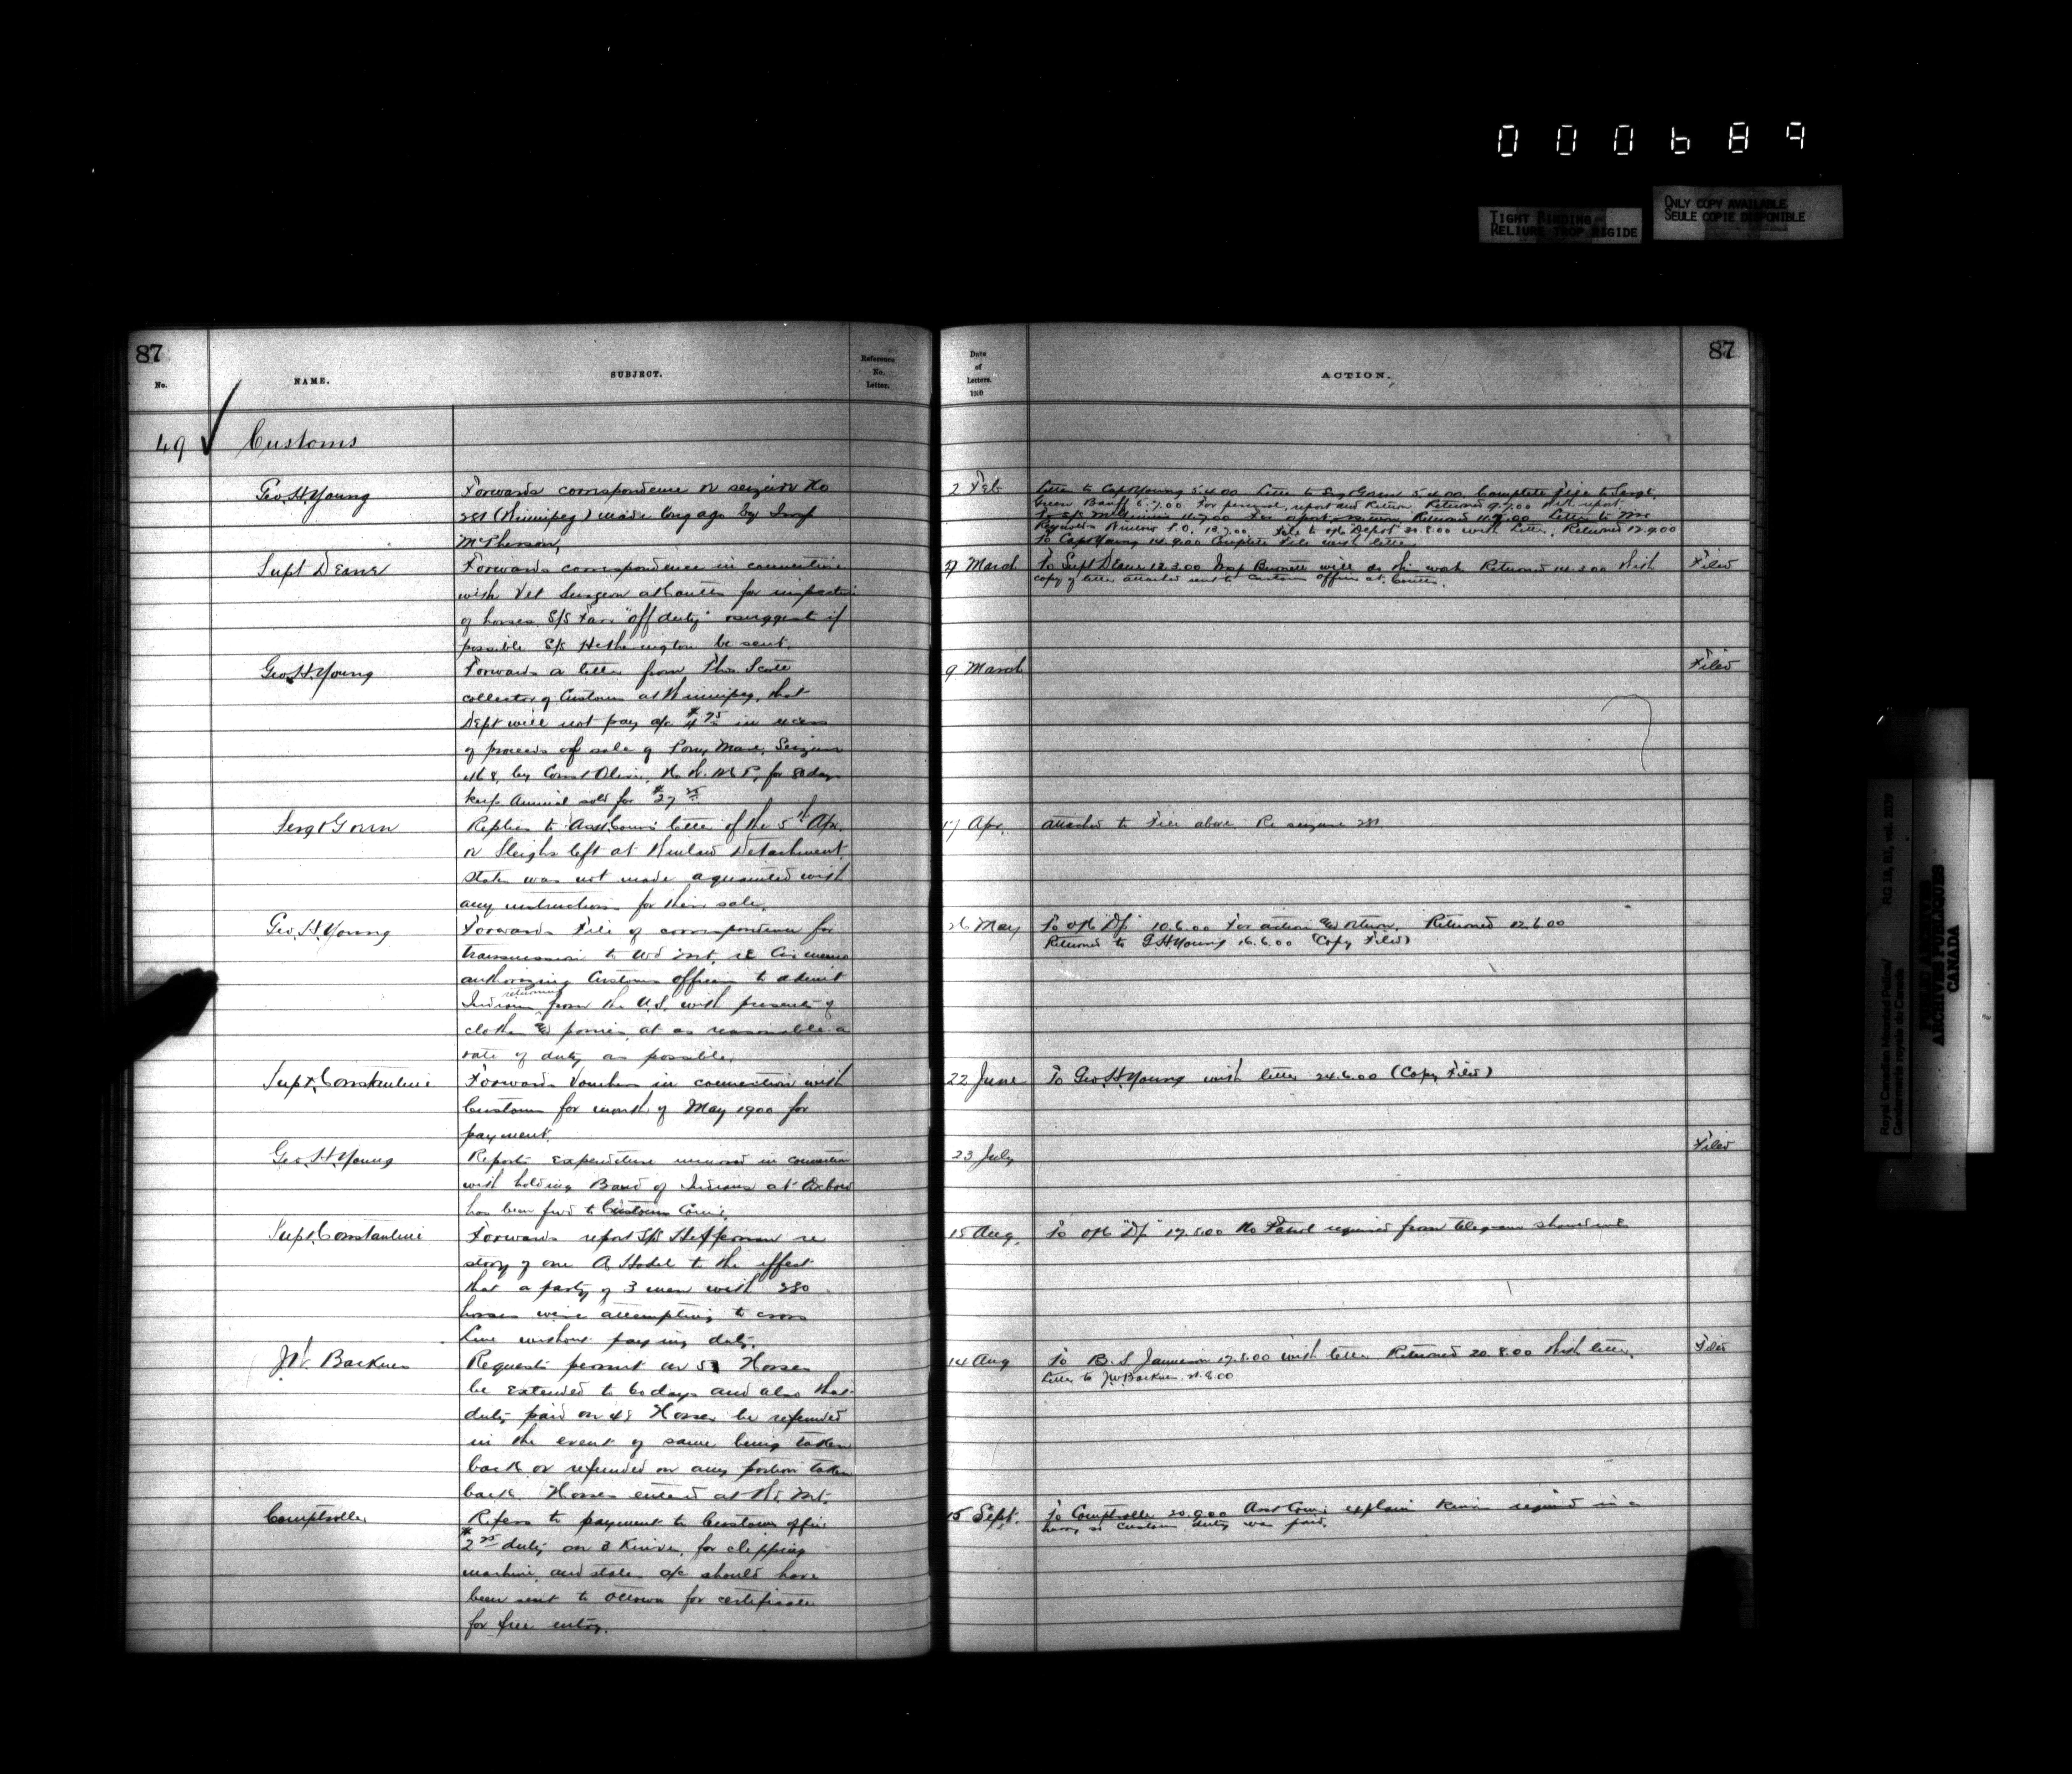 000689
TIGHT BINDING
RELIURE TROP RIGIDE
ONLY COPY AVAILABLE
SEULE COPIE DISPONIBLE
87
No.
NAME.
SUBJECT.
Reference
No.
Letter.
49 Customs
Geo. H. Young
Forwards correspondence re seizure No
281 (Winnipeg) made long ago by Insp
McPherson,
Supt Deane
Forwards correspondence in connection
with Vet Surgeon at Coutts for inspection
of horses, S/S "off duty" suggest if
possible S/S Hetherington be sent.
Geo. H. Young
Forwards a letter from Thos Scott
collector of Customs at Winnipeg, that
Dept will not pay a/c $4 75 in excess
of proceeds of sale of Pony Mare, Seizure
468, by Const N. W. M P, for 80 days
keep Animal sold for $27 25
Sergt Green
Replies to Asst Comr's letter of the 5th Apr.
re Sleighs left at Winlaw Detachment
states was not made aquainted with
any instructions for their sale.
Geo. H. Young
Forwards File of correspondence for
transmission to Wd Mt. re
authorizing Customs officer to admit
Indians returning from the U.S. with presents of
clothes & ponies, at as reasonable a
rate of duty as possible.
Supt. Constantine
Forwards Vouchers in connection with
Customs for month of May 1900 for
payment.
Geo. H. Young
Reports expenditure incurred in connection
with holding Band of Indians at Oxbow
has been fwd to Customs Comr.
Supt. Constantine
Forwards report S/S Heffernan re
story of one A to the effect
that a party of 3 men with 280
horses were attempting to cross
Line without paying duty.
J.W. Backues
Requests permit on 51 Horses
be extended to 60 days and also that
duty paid on 48 Horses be refunded
in the event of same being taken
back or refunded on any portion taken
back. Horses entered at Wd. Mt.
Comptroller
Refers to payment to Customs office
$2 25 duty on 3 Knives, for clipping
machine, and states a/c should have
been sent to Ottawa for certificate
for free entry.
87
Date
of
Letters.
1900
ACTION.
2 Feb
Letter to Capt Young 5.4.00 Letter to Sergt Green 5.4.00. Complete File to Sergt.
Green Banff 5.7.00 For perusal, report and Return, Returned 9.7.00 With report.
Letter to Mr
Reynolds Winlow P.O. 13.7.00. File to o/c Depot 20.8.00 with Letter, Returned 12.9.00
To Capt Young 14.9.00 Complete File with letter.
27 March
To Supt Deane 12.3.00 Insp Burnett will do this work Returned 14.3.00 With
copy of letter attached sent to Customs officer at Coutts.
Filed
9 March
Filed
17 Apr.
attached to File above. Re seizure 281
26 May
To o/c "D/" 10.6.00 For action & return, Returned 12.6.00
Returned to G.H. Young 16.6.00 (Copy Filed)
22 June
To Geo. H. Young with letter 24.6.00 (Copy Filed)
23 July
Filed
15 Aug.
To o/c "D/" 17.8.00 No Patrol required from telegrams
14 Aug
To B. S Jamieson 17.8.00 with letter Returned 20.8.00 With letter.
Letter to J.W. Backues. 21.8.00
Filed
15 Sept.
To Comptroller 20.9.00 Asst Comr. explains Knives required in a
hurry so customs duty was paid.
Royal Canadian Mounted Police/
Gendarmerie royale du Canada
RG 18, B1, vol. 2809
PUBLIC ARCHIVES
ARCHIVES PUBLIQUES
CANADA